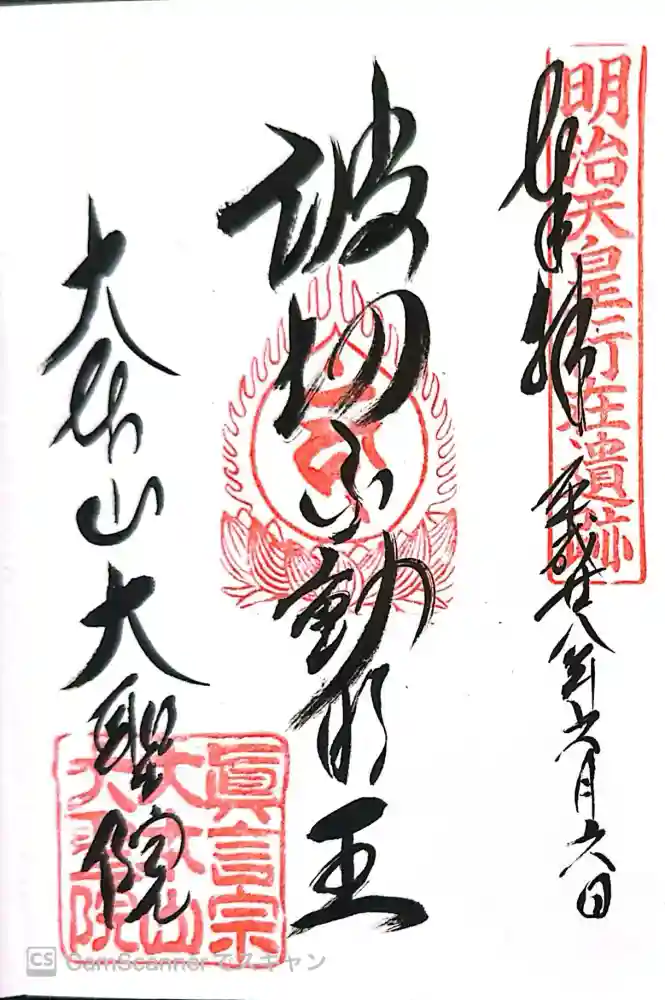 明治天皇行在遺跡
奉拝 平成廿八年六月六日
波切不動明王
大山大聖院
眞言宗
大山
大聖院
CS CamScannerでスキャン